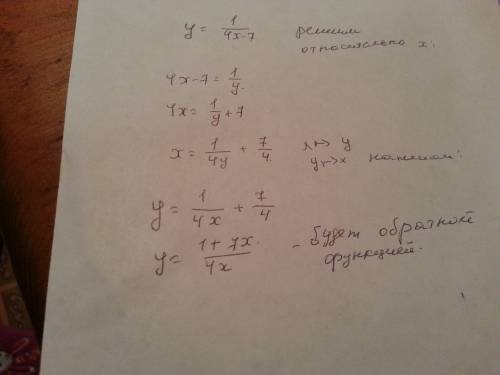 y = 1/(4x-7) решим
относительно x:
4x-7 = 1/y.
4x = 1/y + 7
x = 1/(4y) + 7/4. x ↦ y
y ↦ x
y = 1/(4x) + 7/4
y = (1+7x)/(4x) - будет обратной
функцией.